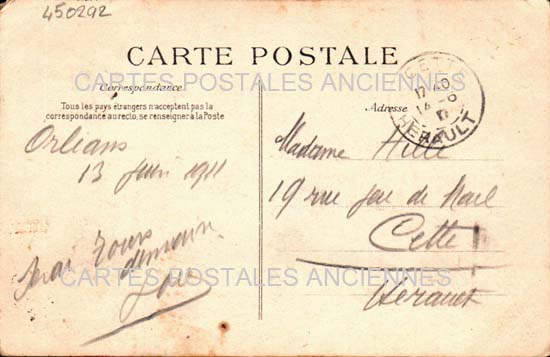 450292
CARTE POSTALE
CARTES POSTALES ANCIENNES
Correspondance
Tous les pays étrangers n'acceptent pas la
correspondance au recto, se renseigner à la Poste
Adresse
CETTE
17 40
14 -6
11
HERAULT
Orléans
13 Juin 1911
Madame
19 rue de
Cette
Hérault
Serai Tours
demain
CARTES POSTALES ANCIENNES